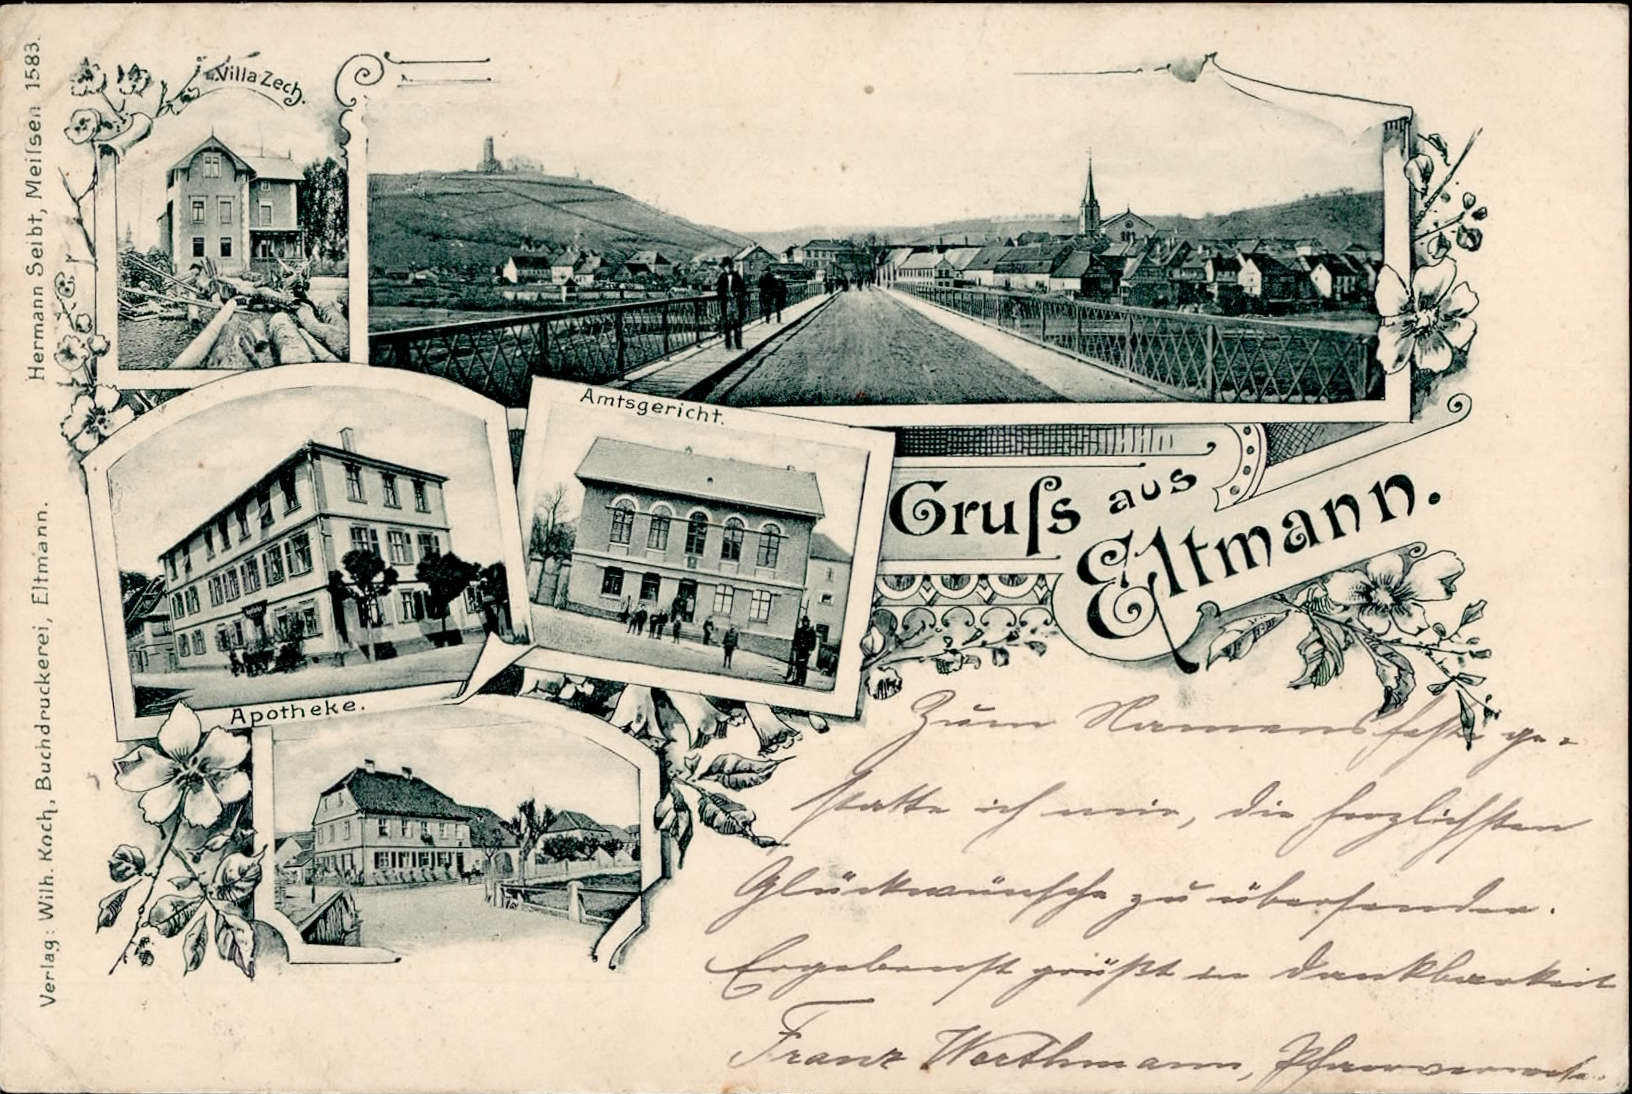 Hermann Seibt, Meiſsen 1583.
Verlag: Wilh. Koch, Buchdruckerei, Eltmann.
Villa Zech.
Amtsgericht.
Apotheke.
Gruſs aus
Eltmann.
Zum Namensfeste ge-
statte ich mir, die herzlichsten
Glückwünsche zu übersenden.
Ergebenst grüßt in Dankbarkeit
Franz Werthmann, Pfarrverwes.